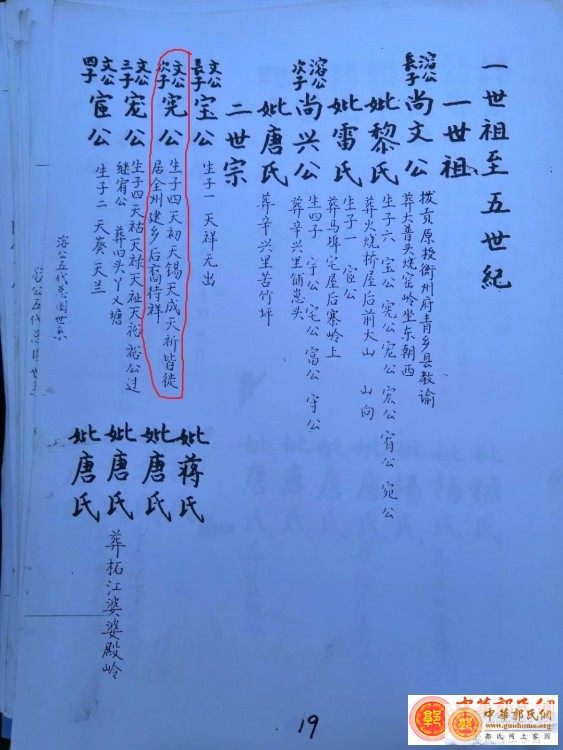 一世祖至五世紀
一世祖
溶公長子 尚文公 拨贡原授衡州府青乡县教谕
葬大普美烧窑岭坐东朝西
妣黎氏 生子六 宝公 宪公 宏公 宥公 宛公
葬火烧桥屋后前大山 山向
妣雷氏 生子一 宦公
葬马埠宅屋后寨岭上
溶公次子 尚兴公 生四子 宇公 宅公 富公 守公
葬辛兴里铺崽头
妣唐氏 葬辛兴里苦竹坪
二世宗
文公長子 宝公 生子一 天祥 元出
妣蒋氏
文公次子 宪公 生子四 天初 天锡 天成 天祈 皆徙
居金州建乡 后裔待祥
妣唐氏
文公三子 宠公 生子四 天祜 天禄 天祉 天裕 裕公过
继宥公 葬四头丫乂塘
妣唐氏
文公四子 宦公 生子二 天葵 天兰
妣唐氏 葬柘江婆婆殿岭
溶公五代总图世系
19
中華郭氏網
www.guohome.org
郭氏网上家园